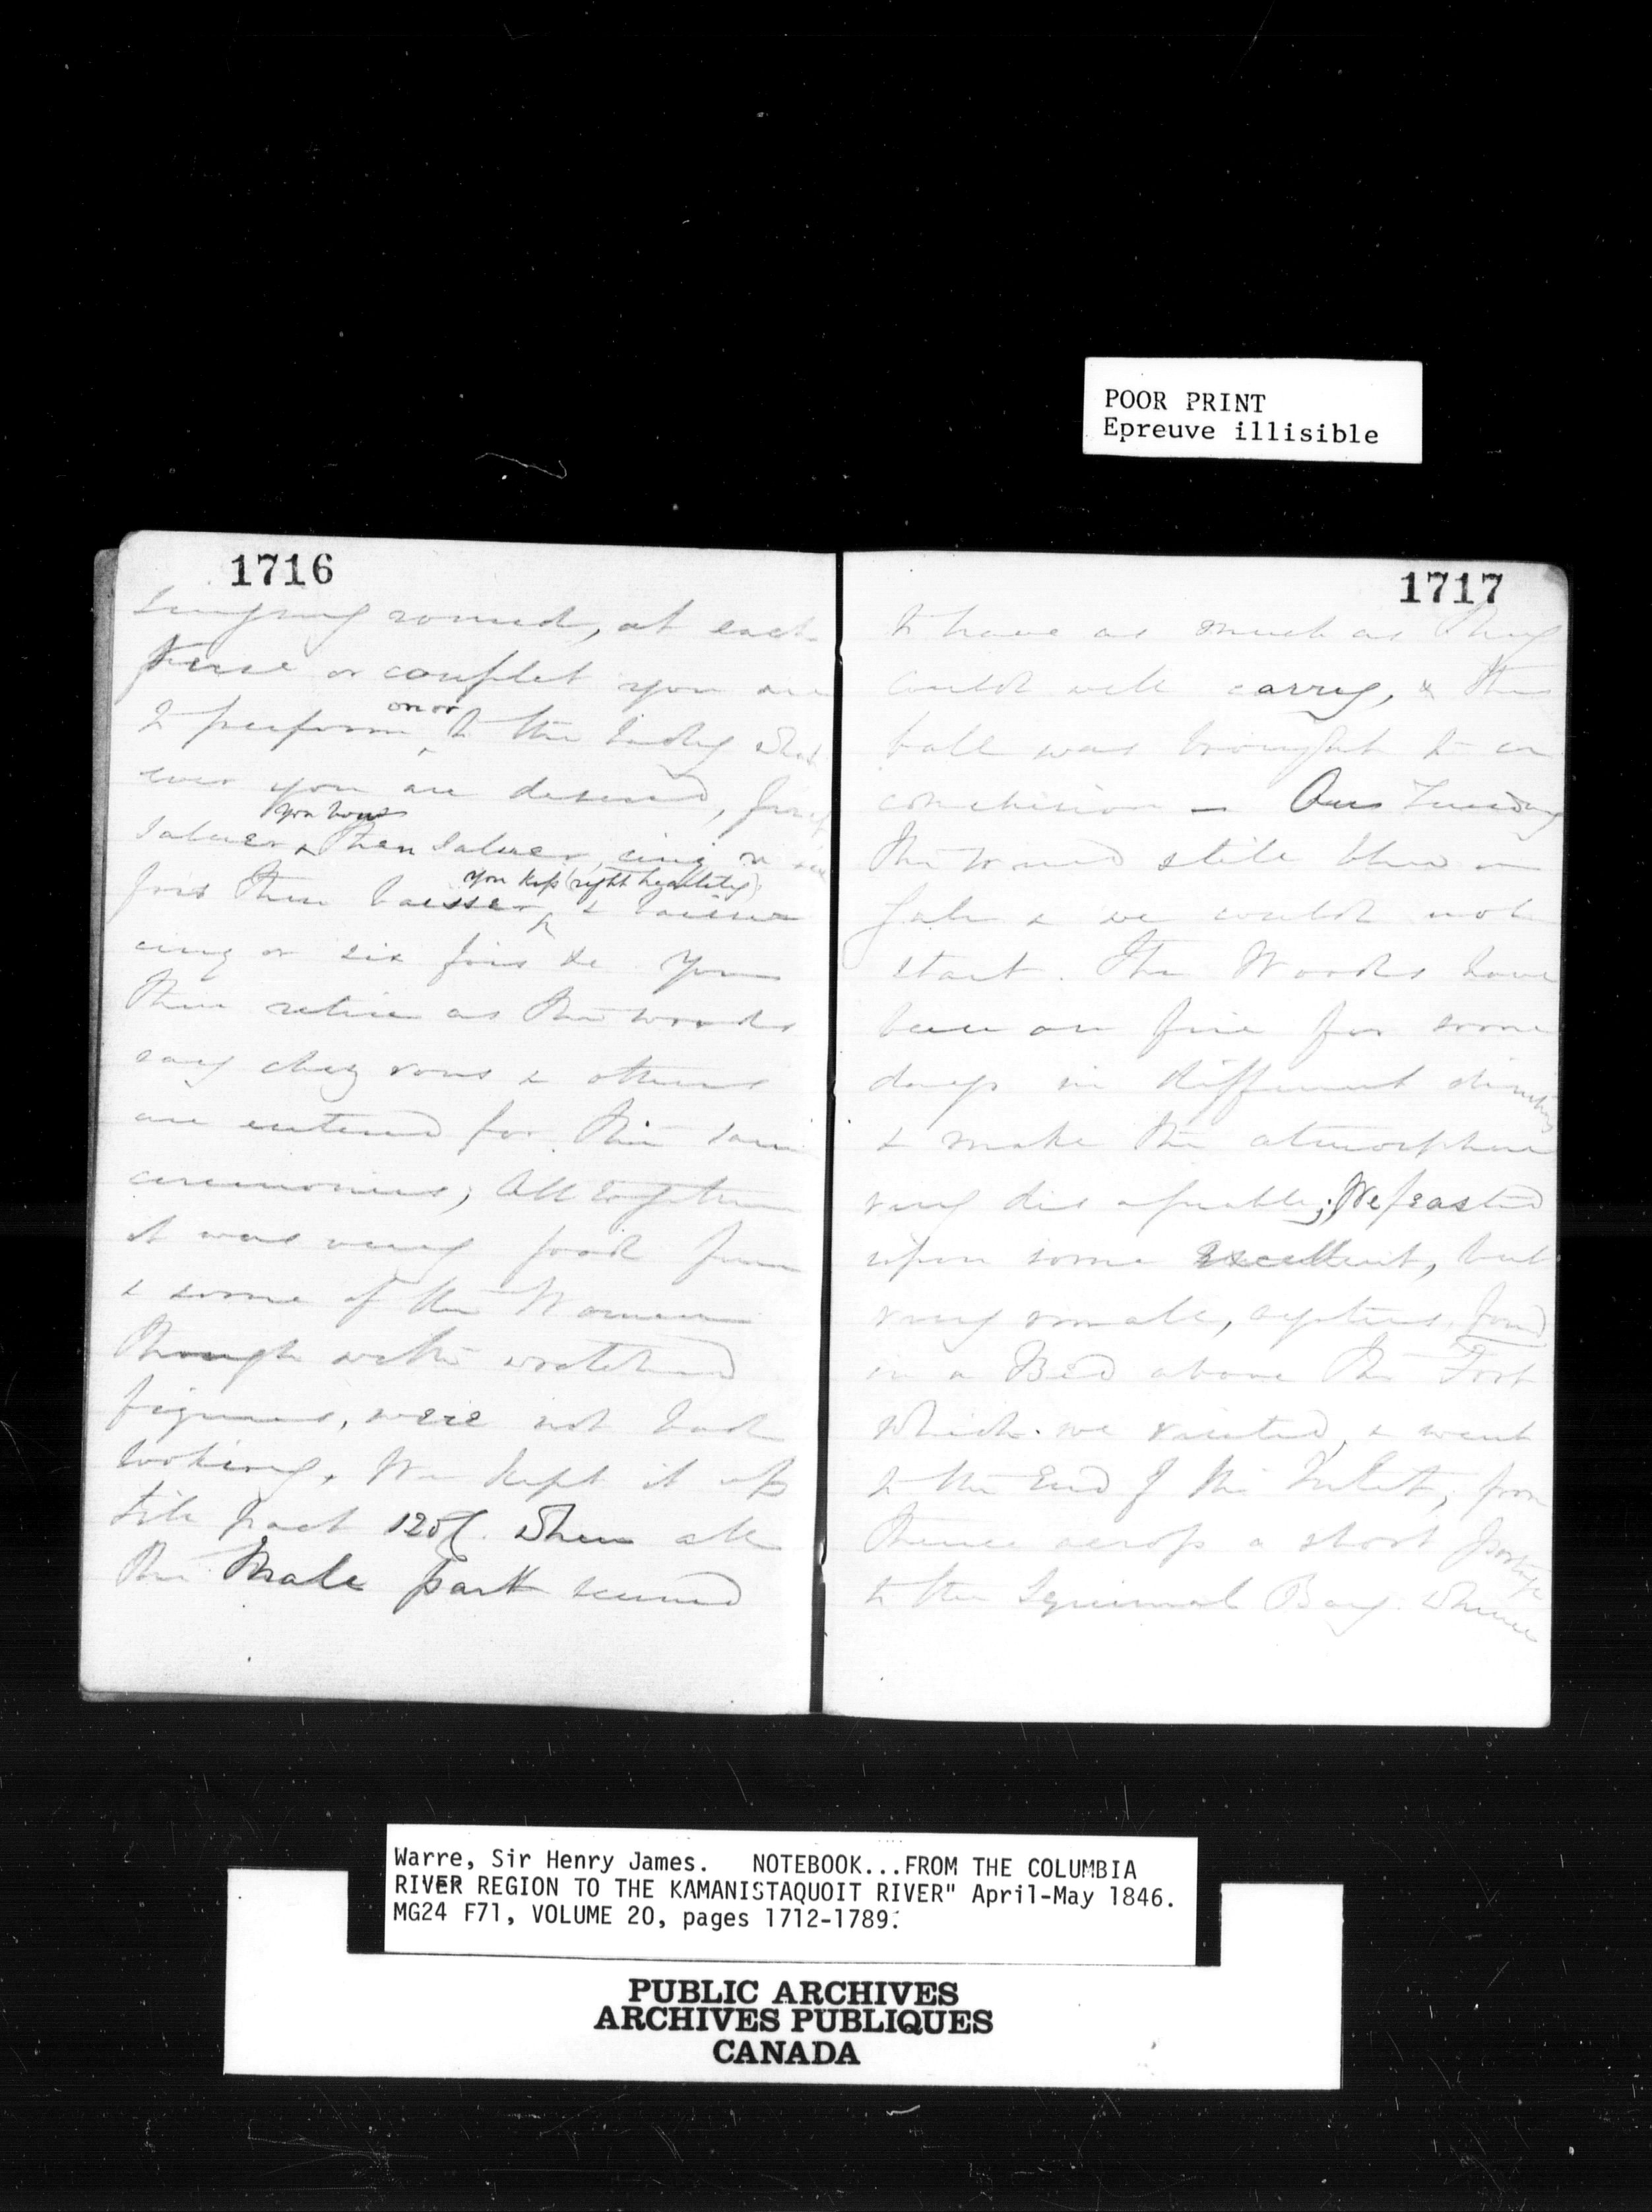 POOR PRINT
Epreuve illisible
1716
singing round, at each
verse or couplet you are
to perform to the Lady what
on or
ever you are desired, first
you bow
saluer & then saluer, cinq ou six
you kiss (right heartily)
fois then baisser & baisser
cinq or six fois &c You
then retire as the words
say chez vous & others
are entered for the same
ceremonies; All together
it was very good fun
& some of the Women
though with wretched
figures, were not bad
looking, We kept it up
till past 12 oC. when all
the Male part seemed
1717
to have as much as they
could well carry, & the
ball was brought to a
conclusion — On Tuesday
the wind still blew a
gale & we could not
start. The Woods have
been on fire for some
days in different directions
& make the atmosphere
very dis agreable; We feasted
upon some excellent, but
very small, oysters, found
in a Bed above the Fort
which we visited, & went
to the End of the Inlet, from
thence across a short portage
to the Squimal Bay. Whence
Warre, Sir Henry James. NOTEBOOK...FROM THE COLUMBIA
RIVER REGION TO THE KAMANISTAQUOIT RIVER" April-May 1846.
MG24 F71, VOLUME 20, pages 1712-1789.
PUBLIC ARCHIVES
ARCHIVES PUBLIQUES
CANADA